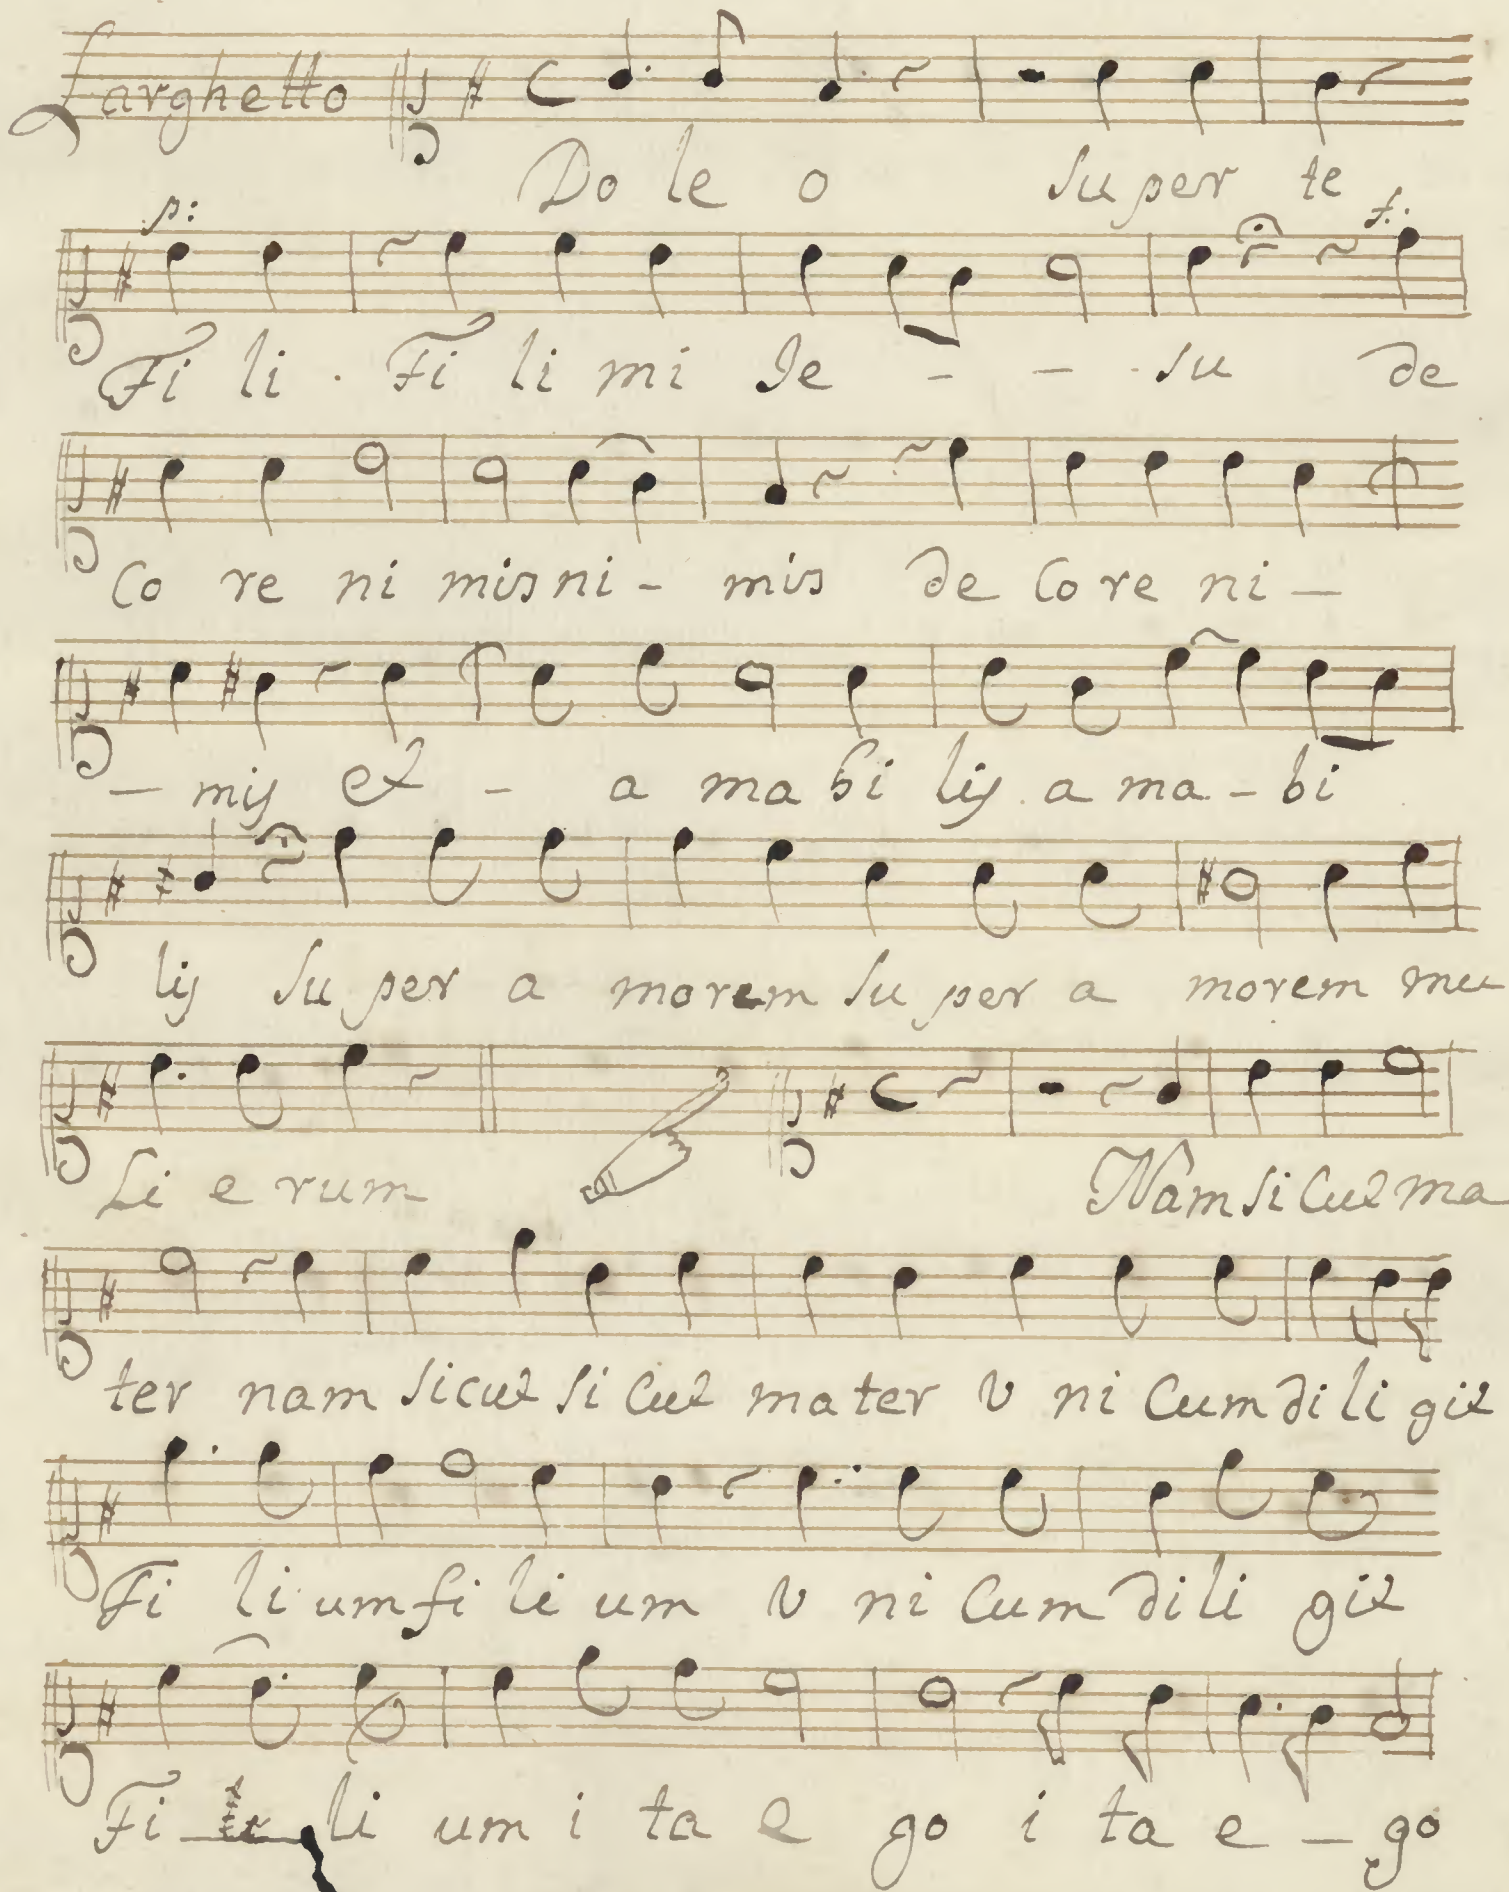 Larghetto
Do le o super te
p: f.
Fi li. Fi li mi Je - - su de
Co re ni mis ni - mis de Core ni -
- mis et - a ma bi lis a ma - bi
lis su per a morem su per a morem mu
Li e rum Nam si Cut ma
ter nam sicut si Cut ma ter v ni Cum di li git
Fi li um fi li um v ni Cum di li git
Fi li um i ta e go i ta e - go